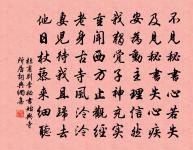 不見秘書心若失
及見秘書失心疾
安為動主理信然
我獨覺子神充實
重聞西方止觀經
老身古寺風泠泠
妻兒待米且歸去
他日杖藜來細聽
杜甫別李秘書始興寺
所居詞典網集